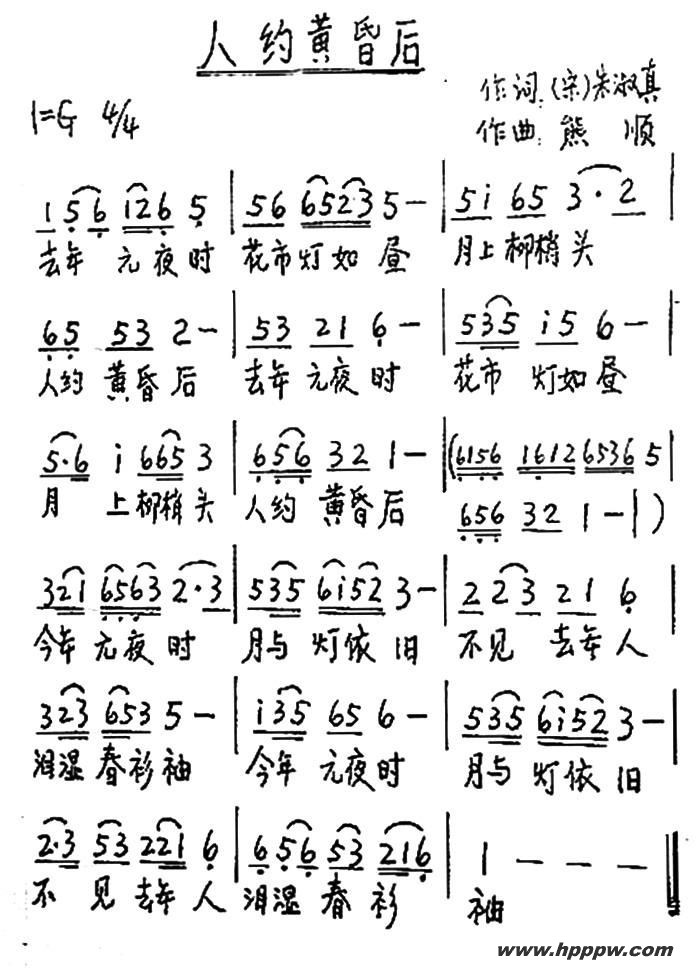 人约黄昏后
作词:(宋)朱淑真
1=G 4/4
作曲:熊 顺
1 5 6 1 2 6 5 | 5 6 6 5 2·3 5 — | 5 i 6 5 3 · 2 |
去年 元夜时 花市灯如昼 月上柳梢头
6 5 5 3 2 — | 5 3 2 1 6 — | 5 3 5 i 5 6 — |
人约黄昏后 去年元夜时 花市 灯如昼
5·6 i 6 6 5 3 | 6 5 6 3 2 1 — | (6156 1612 6536 5 |
月 上柳梢头 人约黄昏后 656 32 1 — | )
3 2 1 6 5 6 3 2·3 | 5 3 5 6 i 5 2 3 — | 2 2 3 2 1 6 |
今年元夜时 月与灯依旧 不见 去年人
3 2 3 6 5 3 5 — | i 3 5 6 5 6 — | 5 3 5 6 i 5 2 3 — |
泪湿春衫袖 今年元夜时 月与灯依旧
2·3 5 3 2 2 1 6 | 6 5 6 5 3 2 1 6 | 1 — — — ‖
不 见去年人 泪湿春衫 袖
www.hpppw.com